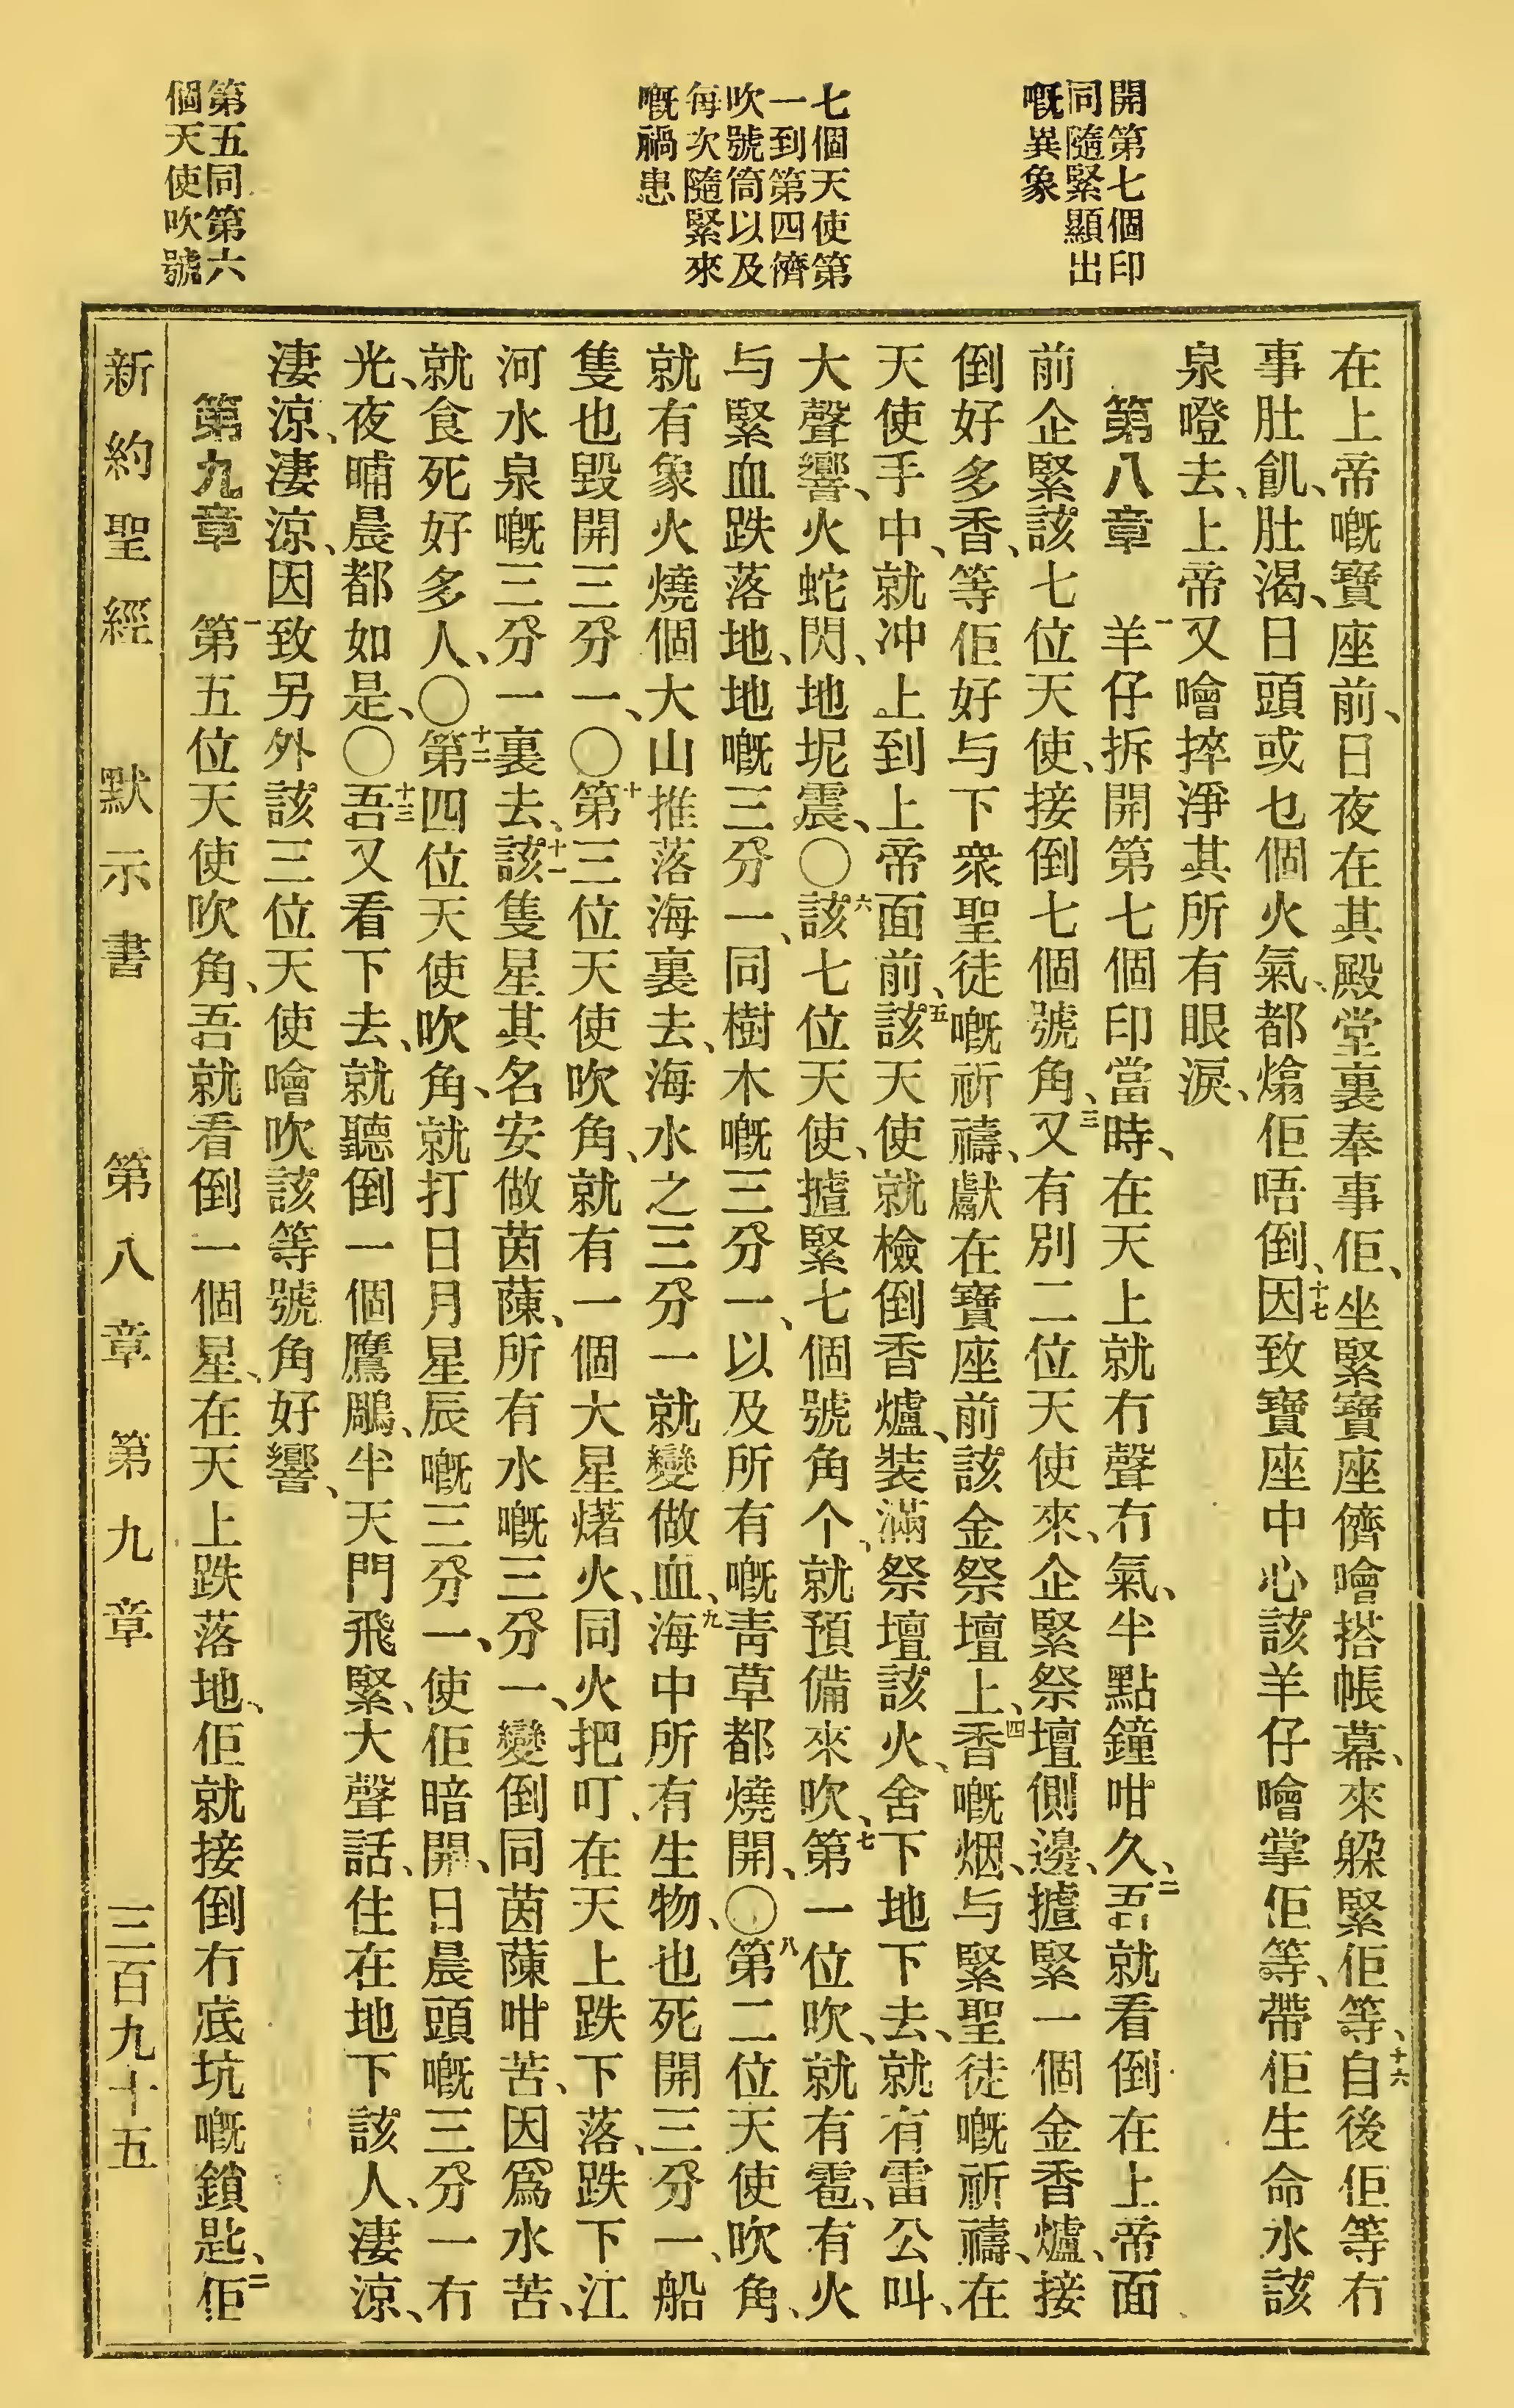 開第七個印
同隨緊顯出
嘅異象
七個天使第
一到第四儕
吹號筒以及
每次隨緊來
嘅禍患
第五同第六
個天使吹號
在上帝嘅寶座前、日夜在其殿堂裏奉事佢、坐緊寶座儕噲搭帳幕、來躱緊佢等、十六自後佢等冇
事肚飢、肚渴、日頭或乜個火氣、都熻佢唔倒、十七因致寶座中心該羊仔噲掌佢等、帶佢生命水該
泉噔去、上帝又噲捽淨其所有眼淚、
第八章 一羊仔拆開第七個印當時、在天上就冇聲冇氣、半點鐘咁久、二吾就看倒在上帝面
前企緊該七位天使、接倒七個號角、三又有別二位天使來、企緊祭壇側邊、揸緊一個金香爐、接
倒好多香、等佢好与下衆聖徒嘅祈禱、獻在寶座前該金祭壇上、四香嘅烟、与緊聖徒嘅祈禱、在
天使手中、就冲上到上帝面前、五該天使就檢倒香爐、裝滿祭壇該火、舍下地下去、就有雷公叫、
大聲響、火蛇閃、地坭震、〇六該七位天使、揸緊七個號角个、就預備來吹、七第一位吹、就有雹、有火
与緊血跌落地、地嘅三分一、同樹木嘅三分一、以及所有嘅靑草都燒開、〇八第二位天使吹角、
就有象火燒個大山推落海裏去、海水之三分一就變做血、九海中所有生物、也死開三分一、船
隻也毀開三分一、〇十第三位天使吹角、就有一個大星㷮火、同火把叮、在天上跌下落、跌下江
河水泉嘅三分一裏去、十一該隻星其名安做茵蔯、所有水嘅三分一、變倒同茵蔯咁苦、因爲水苦、
就食死好多人、〇十二第四位天使吹角、就打日月星辰嘅三分一、使佢暗開、日晨頭嘅三分一冇
光、夜晡晨都如是、〇十三吾又看下去、就聽倒一個鷹鵰、半天門飛緊、大聲話、住在地下該人、淒涼、
淒涼、淒涼、因致另外該三位天使噲吹該等號角好響、
第九章 一第五位天使吹角、吾就看倒一個星、在天上跌落地、佢就接倒冇底坑嘅鎖匙、二佢
新約聖經 默示書 第八章 第九章 三百九十五